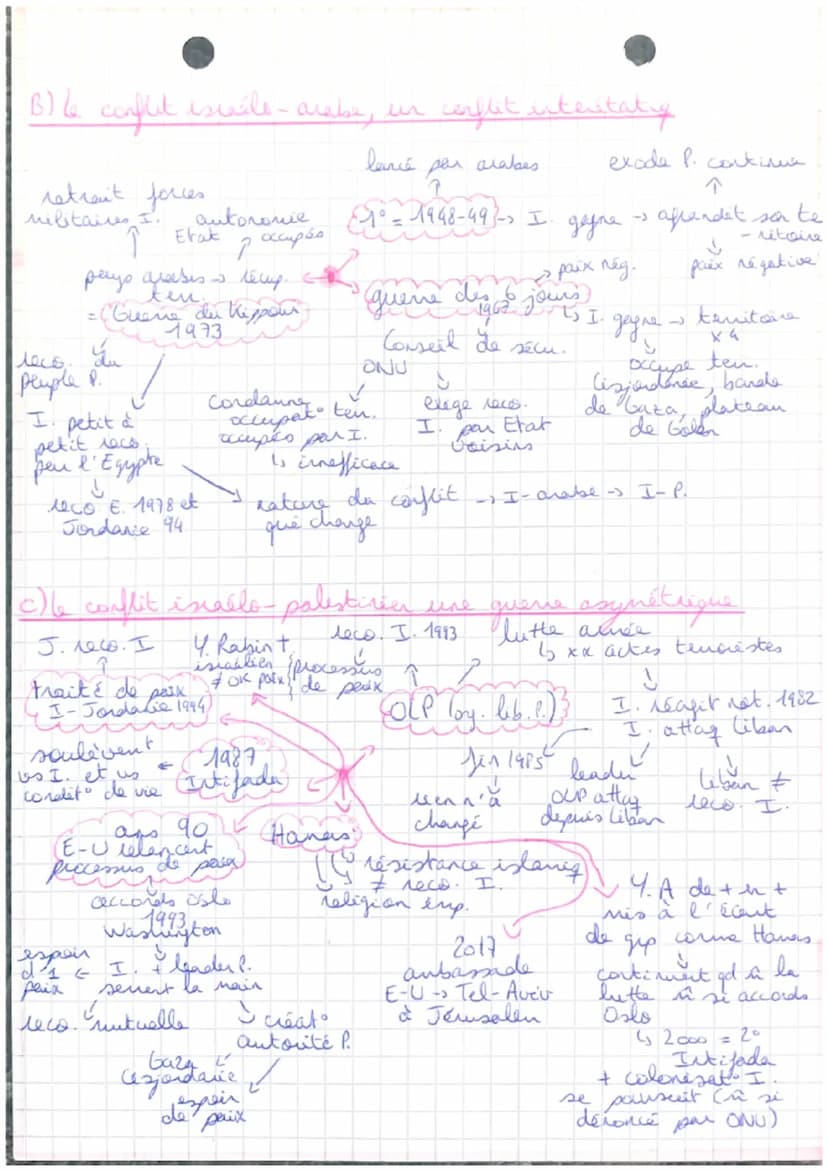 B) Le conflit israélo-arabe, un conflit interétatiq
lancé par arabes
exode P. continue
retrait forces
militaires I.
autonomie
Etat
occupés
1° = 1948-49 -> I. gagne -> agrandet son te
-ritoire
paix négative
pays arabes -> récup.
terr.
= Guerre du Kippour
1973
guerre des 6 jours
1967
paix nég.
I. gagne -> territoire
x 4
reco. du
peuple P.
Conseil de sécu.
ONU
occupe terr.
Cisjordanie, bande
de Gaza, plateau
de Golan
I. petit à
petit reco.
par l'Egypte
Condamne
occupat° terr.
occupés par I.
↳ inefficace
exige reco.
I. par Etat
voisins
reco E. 1978 et
Jordanie 94
nature du conflit -> I-arabe -> I-P.
qué change
C) Le conflit israélo-palestinien une guerre asymétrique
J. reco. I
Y. Rabin †
israélien
≠ OK paix
processus
de paix
reco. I. 1993
lutte armée
↳ xx actes terroristes
traité de paix
I-Jordanie 1994
OLP (og. lib. P.)
I. réagit not. 1982
I. attaq Liban
soulèvent
vs I. et vs
condit° de vie
1987
Intifada
fin 1985
rien n'a
changé
leader
OLP attaq
depuis Liban
Liban ≠
reco. I.
ans 90
E-U relancent
processus de paix
Hamas
résistance islamiq
≠ reco. I.
religion imp.
accords Oslo
1993
Washington
Y. A de + en +
mis à l'écart
de grp comme Hamas
espoir
d'1
paix
I. + leader P.
serrent la main
2017
ambassade
E-U -> Tel-Aviv
à Jérusalem
continuent qd m̂ la
lutte m̂ si accords
Oslo
reco. mutuelle
créat°
autorité P.
↳ 2000 = 2°
Intifada
+ colonisat° I.
se poursuit (m̂ si
dénoncé par ONU)
Gaza
Cisjordanie
espoir
de paix